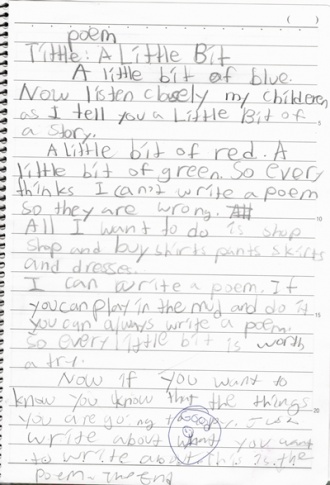 poem
Tittle: A Little Bit
A little bit of blue.
Now listen closely my childeren
as I tell you a Little Bit of
a story.
A little bit of red. A
little bit of green. So every
thinks I can't write a poem
so they are wrong.
All I want to do is shop
shop and buy shirts pants skirts
and dresses.
I can write a poem. If
you can play in the mud and do it
you can always write a poem.
So every little bit is worth
a try.
Now if you want to
know you know that the things
you are going
write about what you want
to write about this is the
poem. The End